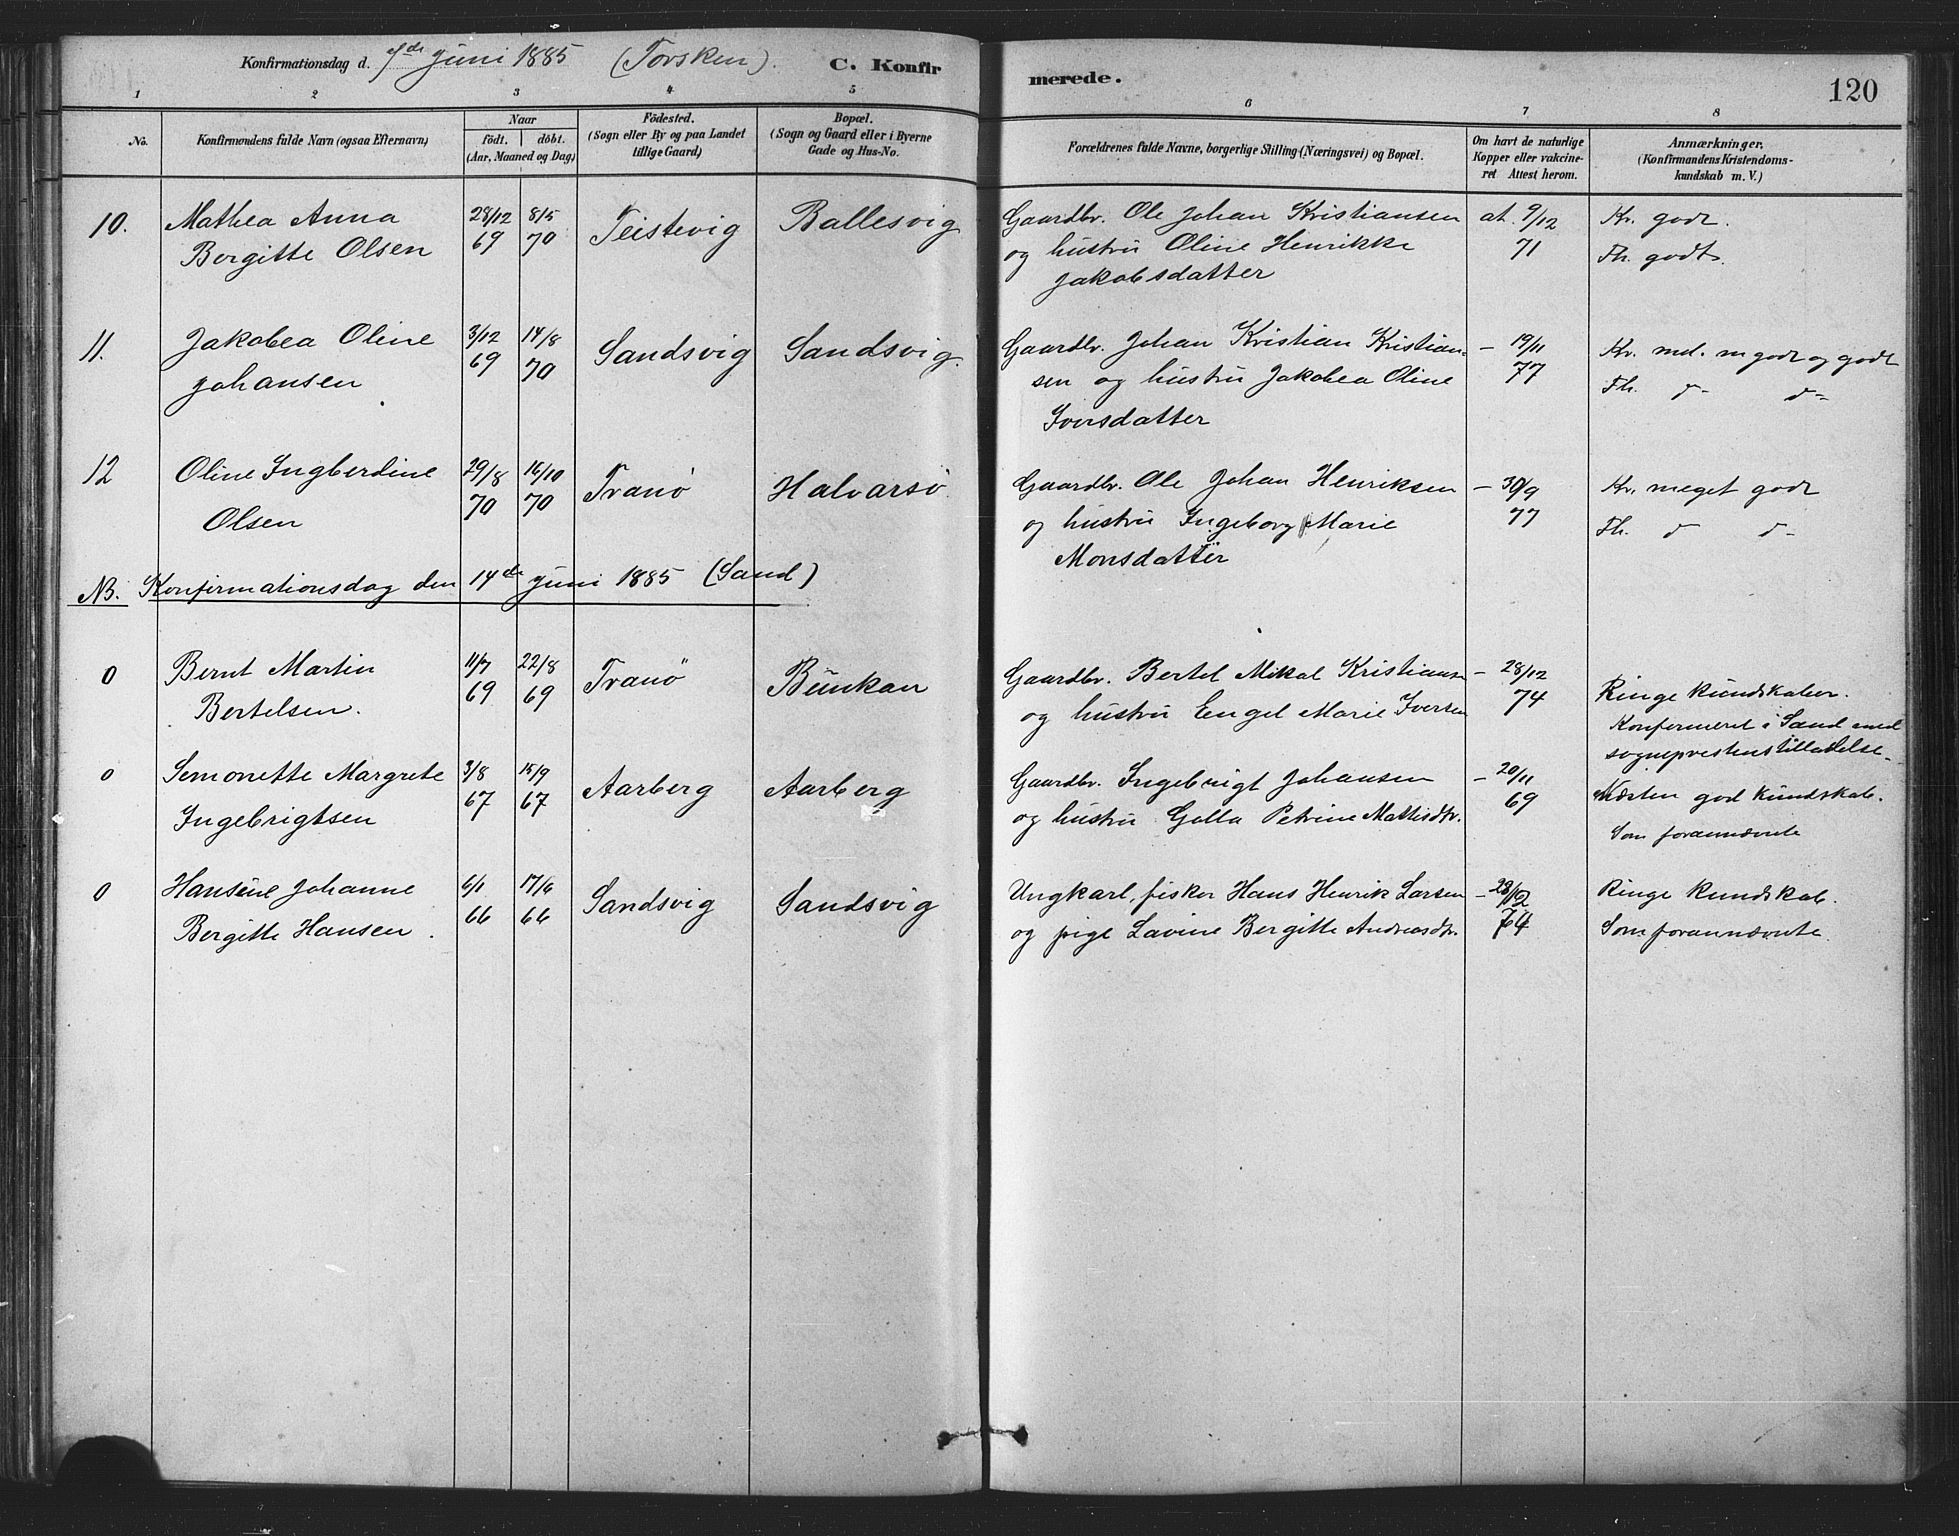 Konfirmationsdag d. 7de Juni 1885 (Torsken). C. Konfir
merede. 120
1 2 3 4 5
6 7 8
No.
Konfirmandens fulde Navn (ogsaa Efternavn)
Naar
födt. döbt.
(Aar, Maaned og Dag)
Födested.
(Sogn eller By og paa Landet
tillige Gaard)
Bopæl.
(Sogn og Gaard eller i Byerne
Gade og Hus-No.
Forældrenes fulde Navne, borgerlige Stilling (Næringsvei) og Bopæl.
Om havt de naturlige
Kopper eller vakcine-
ret Attest herom.
Anmærkninger.
(Konfirmandens Kristendoms-
kundskab m. V.)
10. Mathea Anna 28/12 8/5 Teistevig Ballesvig Gaardbr. Ole Johan Kristiansen at. 9/12 Kr. godt.
Bergitte Olsen 69 70 og hustru Oline Henrikke 71 Fh. godt.
Jakobsdatter
11. Jakobea Oline 3/12 14/8 Sandsvig Sandsvig. Gaardbr. Johan Kristian Kristian- – 19/11 Kr. md. m godt og godt
Johansen 69 70 sen og hustru Jakobea Oline 77 Fh. d- d-
Iversdatter
12 Oline Ingberdine 29/8 16/10 Tranö Halvarsö. Gaardbr. Ole Johan Henriksen – 30/9 Kr. meget godt
Olsen 70 70 og hustru Ingeborg Marie 77 Fh. d d-
Monsdatter
NB. Konfirmationsdag den 14de Juni 1885 (Sand)
0 Bernt Martin 11/7 22/8 Tranö Bunkan Gaardbr. Bertel Mikal Kristians – 28/12 Ringe kundskaber.
Bertelsen. 69 69 og hustru Engel Marie Iversen 74 Konfirmeret i Sand med
sogneprestens tilladelse.
0 Semonette Margrete 3/8 15/9 Aarberg Aarberg Gaardbr. Ingebrigt Johansen – 20/11 Næsten god kundskab.
Ingebrigtsen 67 67 og hustru Golla Petrine Mattisdtr. 69 Som forannævnte
0 Hansine Johanne 6/1 17/6 Sandsvig Sandsvig Ungkarl, fisker Hans Henrik Larsen – 28/12 Ringe kundskab.
Bergitte Hansen. 66 66 og pige Lavine Bergitte Andreasdtr. 74 Som forannævnte.